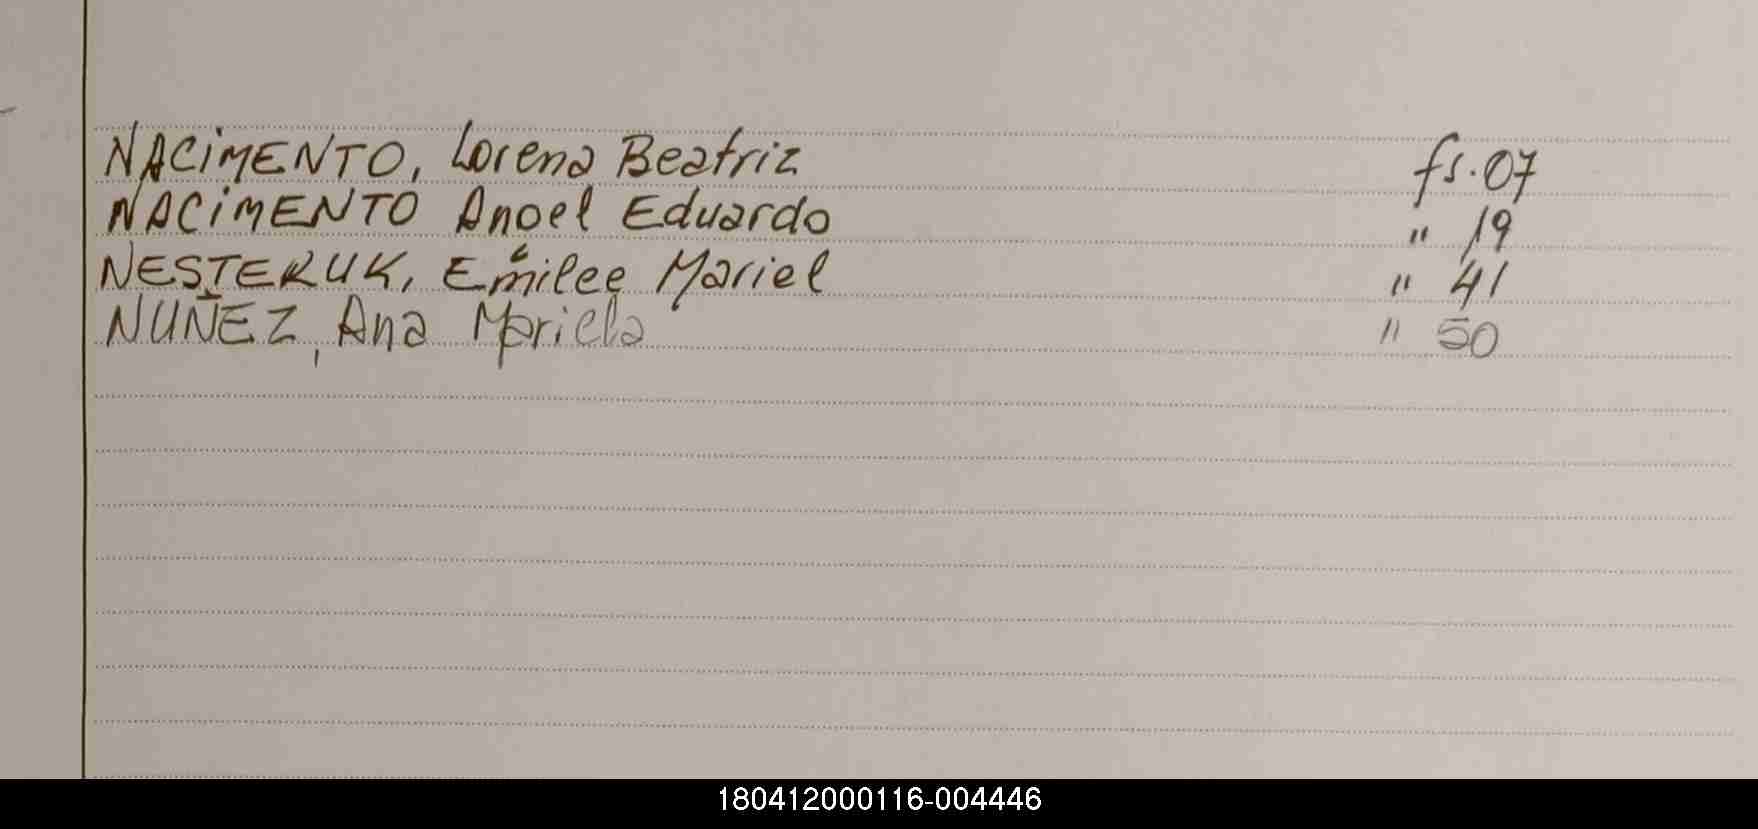 NACiMENTO, Lorena Beatriz fs. 07
NACiMENTO Anoel Eduardo " 19
NESTERUK, Emilee Mariel " 41
NUÑEZ, Ana Mariela " 50
180412000116-004446